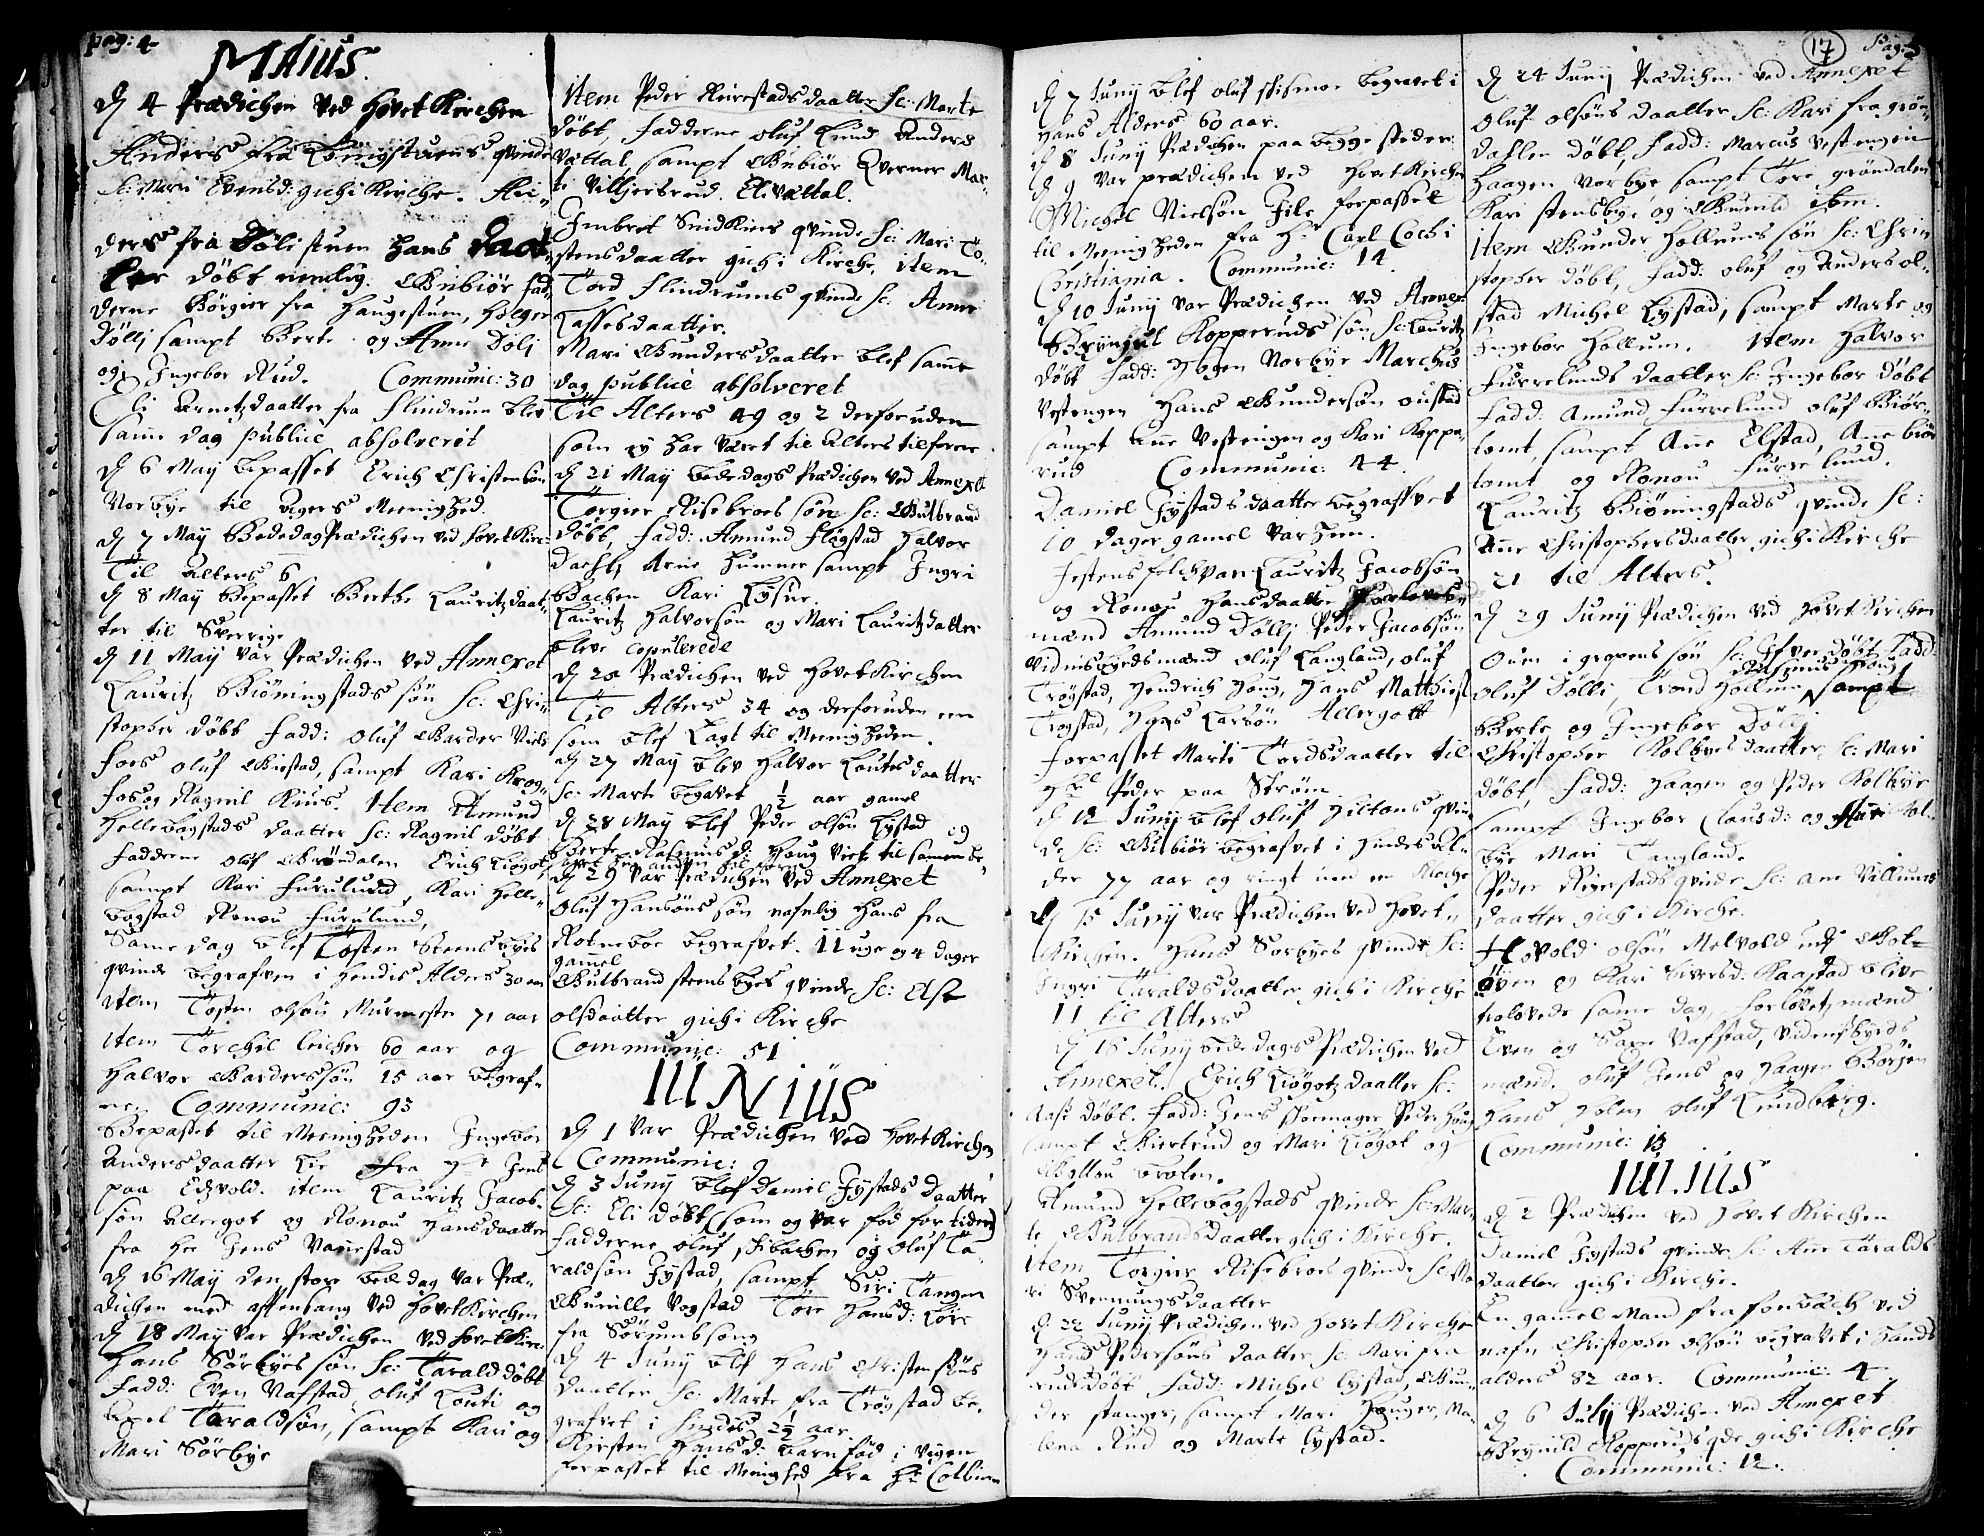 pag: 4
MAIUS.
d 4 Prædichen ved HovetKirchen
Anders fra qvinde
Sc: Mari Evensd: gich i Kirche. An-
ders fra Dölistuen hans daat-
ter döbt nemlig. Gubiör fad-
derne Börger fra Haugestuen, Holger
Dölj sampt Berte og Anne Dölj
og Ingebor Rud. Communic: 30
Eli Arnetzdaatter fra Flindrum blev
samme dag publicè absolveret
d 6 May bepasset Erich Christensön
Norbye til Agers Menighed.
d 7 May BededagPrædichen ved HovetKirc.
Til Alters 6
d 8 May Bepasset Berthe Lauritzdaat-
ter til Sverrig
d 11 May var Prædichen ved Annexet
Lauritz Biöningstads sön Sc: Chri-
stopher döbt fadd: Oluf Niels
foes Oluf sampt Kari Krog-
fos og Ragnil Kius. Item Amund
Hellebogstads daatter Sc: Ragnil döbt
fadderne Oluf Gröndalen Erich Kiöget,
sampt Kari Furulund, Kari Helle-
bogstad Ronou Furulund,
Same dag blef Tosten Steensbyes
qvinde begrafven i hendis Alders 30 aar
Item Tosten olsön Murmester 71 aar
Item Torchel leicher 60 aar og
Halvor Gunderssön 15 aar begraf-
ven Communic: 93
Bepasset til Menigheden Ingebor
Andersdaatter fra Hr Jens
paa Edzvold. item Lauritz Jacob-
sön Allergot og Ronou Hansdaatter
fra Her Jens Vannestad
d 16 May den store bededag var Præ-
dichen med aftensang ved HovetKirchen
d 18 May var Prædichen ved HovetKirc:
Hans Sörbyes sön Sc: Tarald döbt
Fadd: Even Vafstad, Oluf Louti og
Axel Taraldsön, sampt Kari og
Mari Sörbye
Item Peder Rirestads daatter Sc: Marte
döbt, fadderne Oluf Lund Anders
Vættal, sampt Gubiör Qverner Mar-
te Villjersrud. Eli Vættal.
Imbret Snidkiers qvinde Sc: Mari To-
stensdaatter gich i Kirche, item
Tord Flindrums qvinde Sc. Anne
Lassesdaatter.
Mari Gundersdaatter blef samme
dag publicè absolveret
Til Alters 49 og 2 derforuden
som ey har været til Alters tilforne
d 21 May bededags Prædichen ved Annexet
Torgier Risebroes sön Sc: Gulbrand
döbt, fadd: Amund Flögstad Halvor
Dahl, Arne Hummer sampt Ingri
Bachen Kari Lysne.
Lauritz Halvorsön og Mari Lauritzdatter
bleve copulerede
d 20 Prædichen ved HovetKirchen
Til Alters 34 og derforuden en
som blef Lagt til Menigheden.
d 27 May blev Halvor Loutes daatter
Sc: Marte begravet 1/2 aar gamel
d 28 May blef Peder olsön Lystad og
Berte Rasmusd: Houg viet til samen
d 29 var Prædichen ved Annexet
Oluf Hansöns sön nafnlig Hans fra
Rotneboe begrafvet. 11 uge og 4 dager
gamel
Gulbrand steensbyes qvinde Sc: Else
olsdaatter gich i Kirche
Communic: 51
IUNIUS
d 1 var Prædichen ved HovetKirchen
Communic: 9
d 3 Juny blef Daniel Jystads daatter
Sc: Eli döbt (som og var föd for tiden)
Fadderne Oluf skibachen og Oluf Ta-
raldsön Jystad, sampt Siri Tangen
Gunille Vogstad Tore Hansd: Löre
fra Sörumbsong
d 4 Juny blef Hans Christen
daatter Sc: Marte fra Trögstad be-
grafvet i hindes 2 1/2 aar.
Kirsten Hansd: barnföd i Vigen
forpasset til Menighed fra Hr Colbiörn
d 7 Juny blef Oluf begravet i
Hans Alders 60 aar.
d 8 Juny Prædichen paa begge steder
d 9 var prædichen ved HovetKirchen
Michel Nielsön File forpasset
til Menigheden fra Hr. Carl Coch i
Christiania. Communic: 14.
d 10 Juny var Prædichen ved Annex
Brynjul Kopperuds sön Sc: Lauritz
döbt fadd: Hogen Norbye Marchus
Vestengen Hans Gundersön oustad
sampt Ane Vestengen og Kari Koppe-
rud Communic: 44.
Daniel Jystads daatter begrafvet
10 dager gamel var hun.
Festensfolch var Lauritz Jacobsön
og Ronou Hansdaatter Forlovelses
mænd Amund Döllj Peder Jacobsön
Vidnisbyrdsmænd Oluf Langland, Oluf
Trögstad, Hendrich Houg, Hans Matthies
Trogstad, Hans Larsön Allergott
Forpasset Marte Tordsdaatter til
Hr Peder paa Ström
d 12 Juny blef Oluf Hiltons qvin-
de Sc: Gubiör begrafvet i hindes al-
der 77 aar og ringt inn en Kloche
d 15 Juny var Prædichen ved Hovet
Kirchen. Hans Sorbyes qvinde Sc:
Ingri Taraldsdaatter gich i Kirche
11 til Alters
d 16 Juny bededags Prædichen ved
Annexet. Erich Kiögetz daatter Sc:
Aase döbt. fadd: Jens skomager Peder Houg
sampt Giertrud og Mari Kiöget og
Brolen.
Amund Hellebogstads qvinde Sc: Mar-
te Gulbrandsdaatter gich i Kirche.
Item Torgier Risebroes qvinde Sc: Ma-
ri Svenungsdaatter
d 22 Juny Prædichen ved Hovet Kirche
Hans Pedersöns daatter Sc: Kari fra
rud döbt fadd: Michel Lystad, Gun-
der stanger, sampt Mari Houger, Ma-
lena Rud og Marte Lystad.
17 Pag: 5
d 24 Juny Prædichen ved Annexet
Oluf olsöns daatter Sc: Kari fra grön-
dahlen döbt, fadd: Marcus Vestengen
Haagen Norbye, sampt Tore gröndalen
Kari stensbye, og Gunild ibm.
Item Gunder Hollums sön Sc: Chri-
stopher döbt, fadd: Oluf og Anders ol-
stad Michel Lystad, sampt Marte og
Ingebor Hollum. Item Halvor
Furrelunds daatter Sc: Ingebor döbt
fadd: Amund Furrelund Oluf Biör-
tomt, sampt Ane Elstad, Ane biör
tomt og Ronou Furrelund.
Lauritz Biöningstads qvinde Sc:
Ane Christophersdaatter gich i Kirche
21 til Alters.
d 29 Juny Prædichen ved HovetKirchen
Ouen i gropens sön Sc: Ifver döbt fadd:
Oluf Dölli, Trond Hollum Rasmus Houg sampt
Berte og Ingebor Dölj
Christopher Kolbyes daatter Sc: Mari
döbt, fadd: Haagen og Peder Kolbye
sampt Ingebor Clausd: og Kol-
bye Mari Langland.
Peder Rirestads qvinde Sc: Ane Villums
daatter gich i Kirche.
Hovold olsön Melvold
og Kari Siversd: Kaastad blive
trolovede same dag, forlöfvetzmænd
Even og Vafstad, Vidnisbyrds
mænd. Oluf Jens og Haagen Börjen
Hans Holm Oluf Lundberg.
Communic: 13
IULIUS
d 2 Prædichen ved Hovet Kirchen
Daniel Jystads qvinde Sc: Ane Taralds
daatter gich i Kirche.
En gamel Mand fra fonbach ved
nafn Christopher olsön begravet i hands
alders 82 aar. Communic: 4
d 6 July Prædichen ved Annexet
Brynild Kopperuds qde gich i Kirche
Communic: 12.